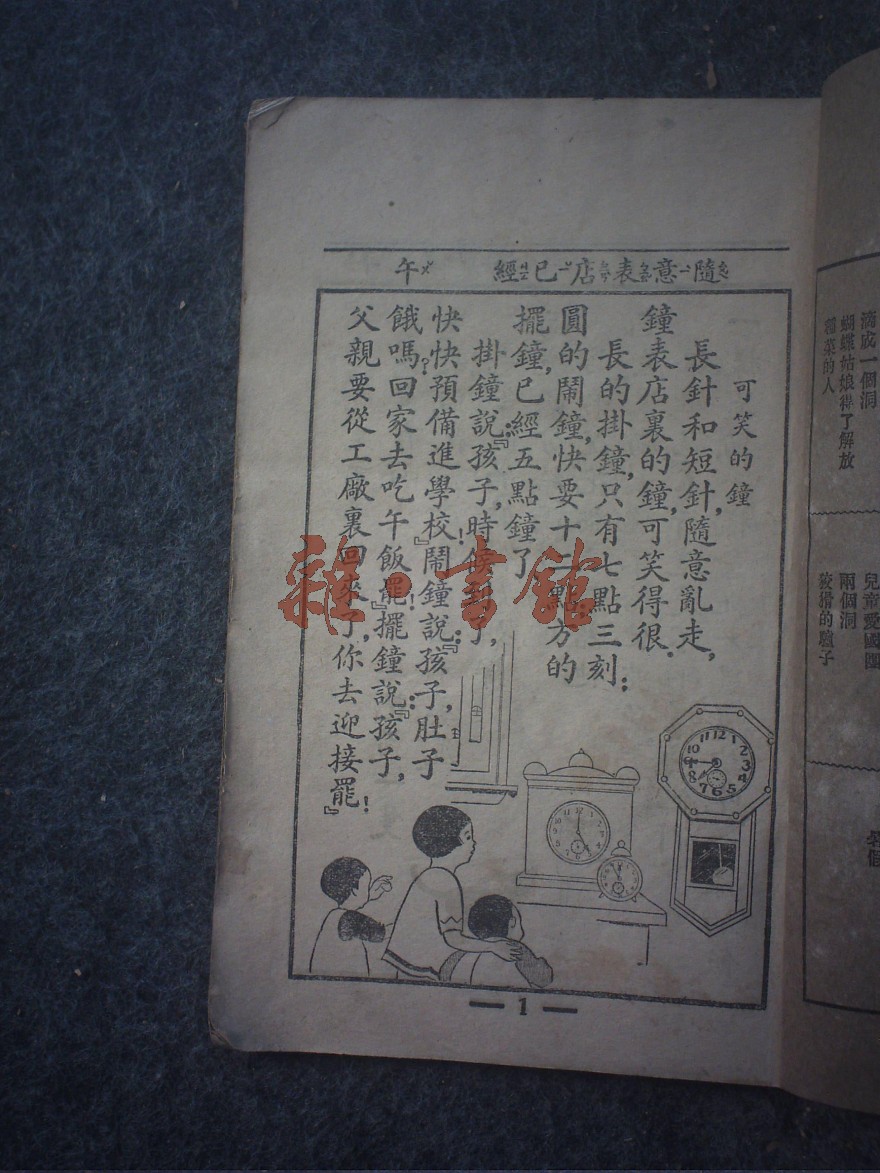 滴成一個洞
蝴蝶姑娘得了解放
種菜的人
兒童愛國團
兩個洞
狡猾的驢子
隨意表店已經 午
可笑的鐘
長針和短針,隨意亂走,
鐘表店裏的鐘,可笑得很。
長的掛鐘,只有七點三刻;
圓的鬧鐘,快要十二點;方的
擺鐘,已經五點鐘了。
掛鐘說:『孩子,時候到了,
快快預備進學校!』鬧鐘說:『孩子,肚子
餓嗎?回家去吃午飯罷!』擺鐘說:『孩子,
父親要從工廠裏回來了,你去迎接罷!』
雜·書館
1